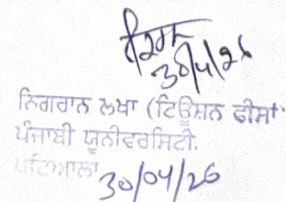 30/4/26
ਨਿਗਰਾਨ ਲੇਖਾ (ਟਿਊਸ਼ਨ ਫੀਸਾਂ
ਪੰਜਾਬੀ ਯੂਨੀਵਰਸਿਟੀ.
ਪਟਿਆਲਾ 30/04/26